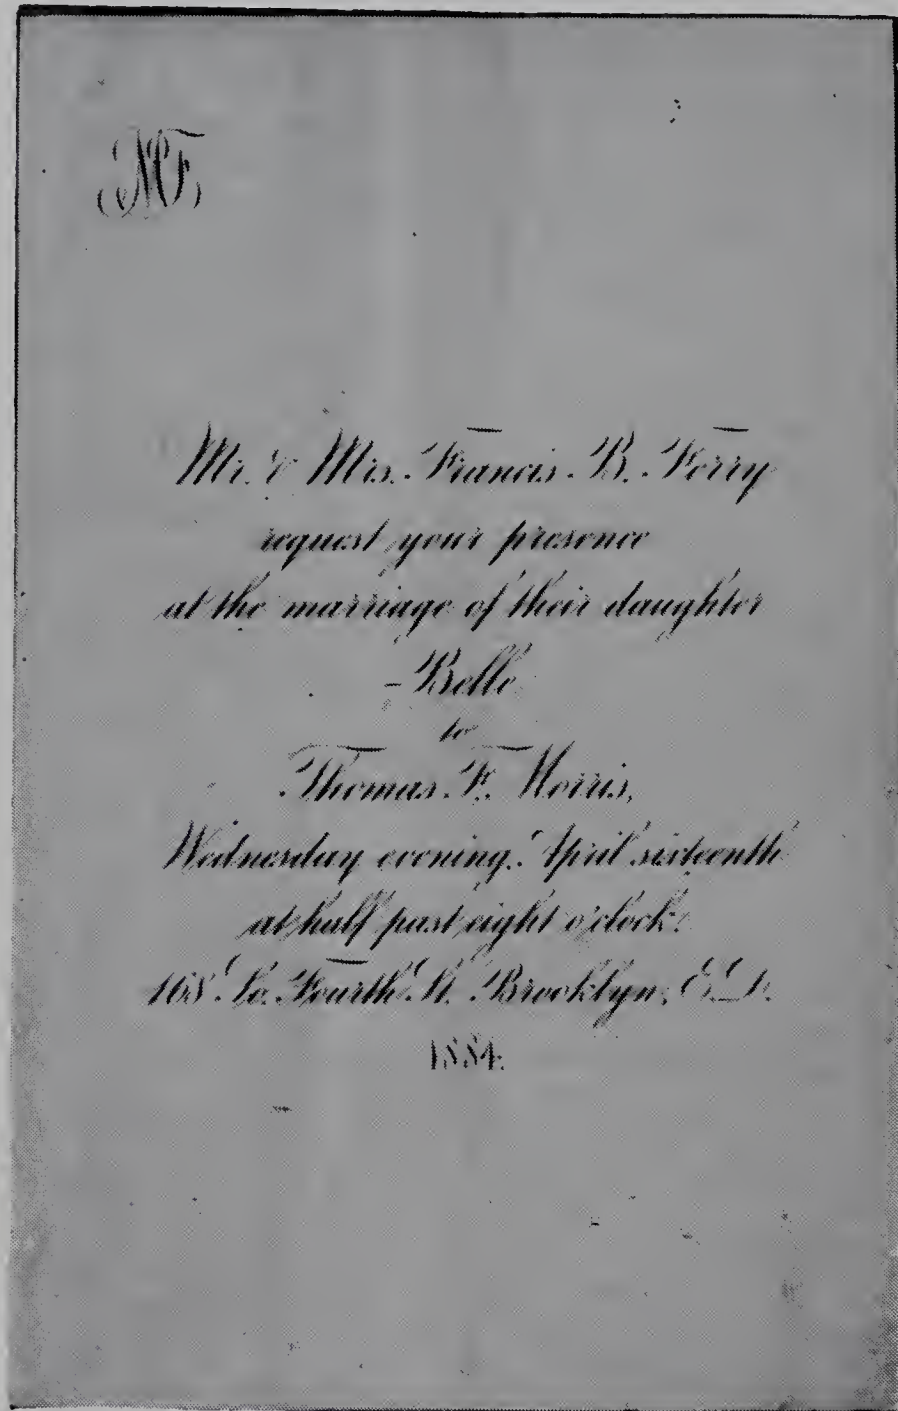 MF
Mr. & Mrs. Francis B. Ferry
request your presence
at the marriage of their daughter
Belle
to
Thomas F. Morris,
Wednesday evening, April sixteenth
at half past eight o'clock.
168 So. Fourth St. Brooklyn, E.D.
1884.